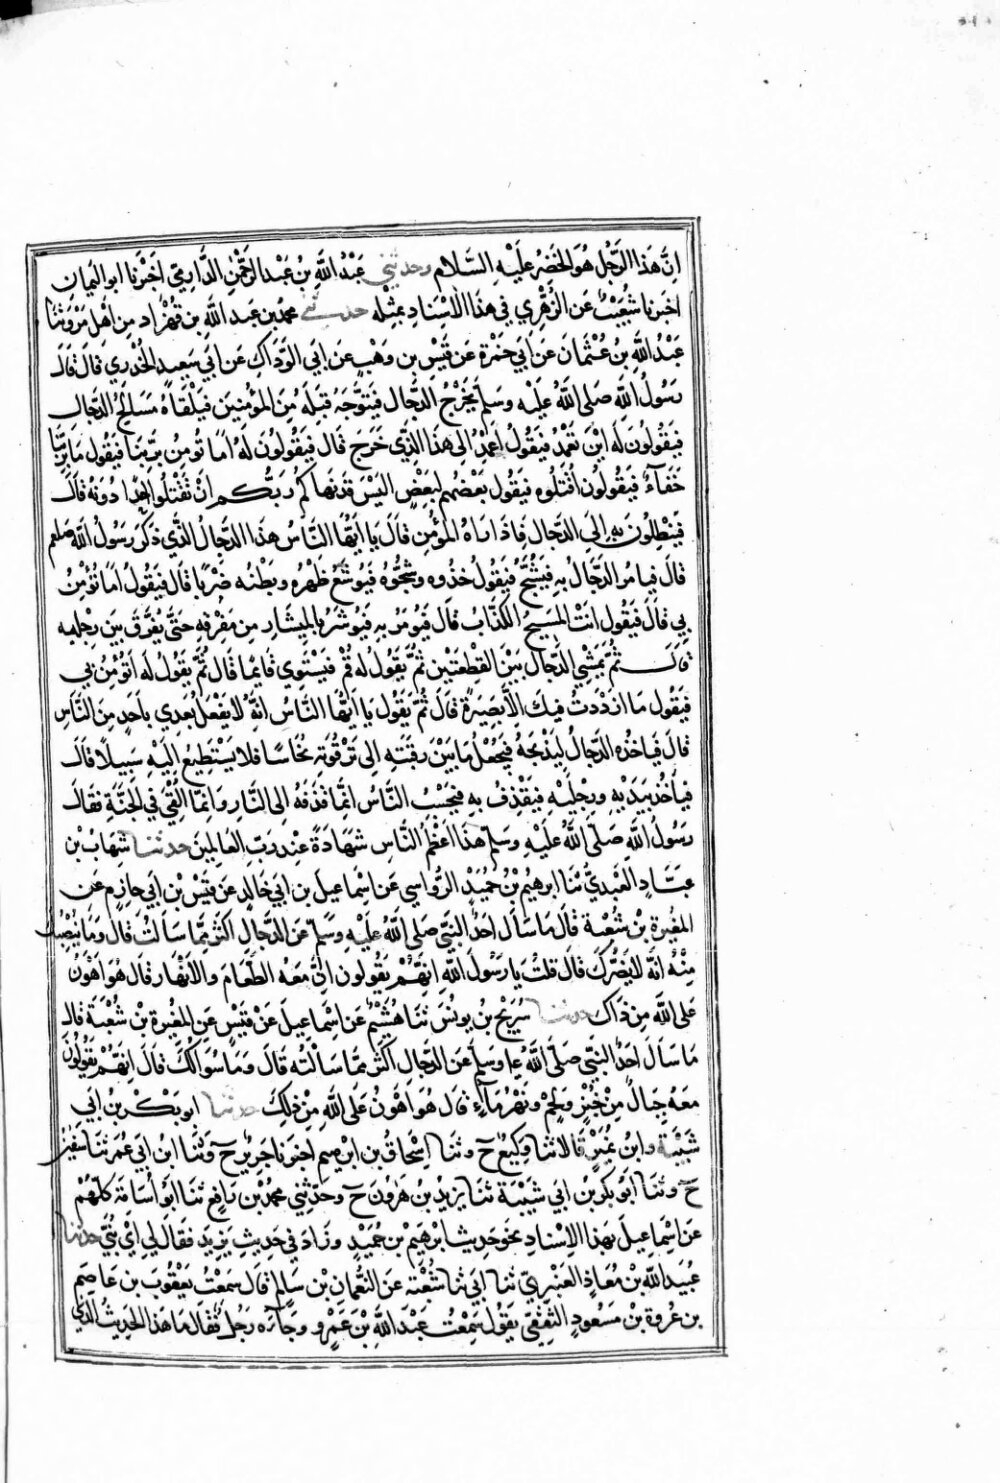 اِنَّ هَذَا الرَّجُل هُوَ الخَضِرُ عَلَيْهِ السَّلَام وحدثني عَبْدُ اللهِ بن عَبْد الرَّحْمٰنِ الدَّارِمِيّ اَخْبَرَنَا ابو اليَمان
اخبرنا شُعَيْبٌ عَن الزُّهْرِي فِي هَذَا الاِسْنَادِ بمِثْلِه حدثني محمد بن عَبد الله بن قُهْزَاد مِن اَهْل مَرْوَ ثنَا
عَبْدُ اللهِ بن عُثْمان عَن اَبي حَمْزة عَن قَيْس بن وَهْبٍ عَن اَبي الوَدَّاكِ عَن اَبي سَعيدٍ الخُدْري قالَ قالَ
رَسُولُ اللهِ صَلى اللهُ عَلَيْهِ وسَلم يَخْرُجُ الدَّجَّال فيَتَوَجَّهُ قِبَلَهُ رَجُلٌ مِنَ المؤمنينَ فَيَلْقَاهُ مَسَالِحُ الدَّجال
فيَقُولُونَ لَه اَيْنَ تَعْمِدُ فيَقُولُ اَعْمِدُ الى هَذا الذِّي خَرَجَ قال فيَقُولُونَ لَهُ امَا تُومِنُ بِرَبِّنَا فيَقُولُ مَا بِرَبِّنَا
خَفَاءٌ فيَقُولُونَ اقْتُلُوه فيَقُول بَعْضُهُم لِبَعْضٍ اَليْسَ قَدْ نَهاكُم رَبُّكُم اَنْ تَقْتُلُوا اَحَدًا دُونَهُ قالَ
فَيَنْطَلِقُونَ بِهِ اِلَى الدَّجال فَاذا رَاهُ المؤْمِن قالَ يَا اَيُّهَا النَّاسُ هَذا الدجالُ الذِّي ذَكَرَ رَسُولُ اللهِ صلعم
قالَ فيامُر الدَّجالُ بِهِ فَيُشَبَّحُ فيَقُولُ خُذُوه وشُجُّوهُ فَيُوسَعُ ظَهْرُه وبَطْنُه ضَرْبًا قالَ فيَقُولُ اَمَا تُؤْمِنُ
بِي قالَ فيَقُول اَنْتَ المَسِيحُ الكَذَّابُ قالَ فيُومَرُ بِهِ فَيُوشَرُ بالمِيشَارِ مِن مَفْرِقِهِ حَتَّى يُفَرَّقَ بين رِجْلَيه
قالَ ثُمَّ يَمْشِي الدَّجال بَيْنَ القِطْعَتَيْنِ ثمَّ يَقُولُ لَه قُمْ فَيَسْتَوِي قَايمًا قالَ ثُمَّ يَقُولُ لَه اَتُوْمِنُ بِي
فيَقُول مَا ازْدَدْتُ فِيكَ اِلَّا بَصِيرَةً قالَ ثُمَّ يَقُول يَا اَيُّهَا النَّاسُ اِنَّهُ لا يَفْعَلُ بَعْدِي بِاَحَدٍ مِنَ النَّاسِ
قالَ فيَاخُذه الدَّجالُ لِيَذْبَحَهُ فيُجْعَلُ مَا بَيْنَ رقَبَتِهِ الى تَرْقُوَتِهِ نُحَاسًا فلا يَسْتَطِيعُ اِلَيْهِ سَبِيلًا قالَ
فيَاخُذُ بِيَدَيْهِ ورِجْلَيْهِ فَيَقْذِفُ بِهِ فيَحْسِبُ النَّاسُ انَّمَا قَذَفَهُ الى النَّارِ وَانَّمَا اُلْقِيَ فِي الجَنَّةِ فقَالَ
رَسُولُ اللهِ صَلّى اللهُ عَلَيْهِ وسَلم هَذا اَعْظَمُ النَّاسِ شَهَادَةً عِنْدَ رَبِّ العَالَمِينَ حدثنا شِهَابُ بْن
عبَّادٍ العَبْدِيُّ ثنَا ابرهِيم بْن حُمَيْدٍ الرُّواسِي عَن اِسْمَاعيلَ بنِ اَبي خَالدٍ عَن قَيْسِ بْنِ اَبي حازِم عَن
المُغِيرةِ بنِ شُعْبة قالَ مَا سَاَلَ اَحَدٌ النَّبيَّ صَلى اللهُ عَلَيْهِ وسَلم عَنِ الدَّجالِ اَكْثَرَ مِمَّا سَاَلْتُ قالَ ومَا يُنْصِبُكَ
مِنْهُ اِنَّهُ لا يَضُرُّكَ قالَ قلتُ يا رَسُولَ اللهِ اِنَّهُمْ يَقُولونَ اِنَّ مَعَهُ الطَّعَامَ والاَنْهارَ قالَ هُوَ اَهْوَنُ
عَلى اللهِ مِنْ ذَاكَ حدثنا سُرَيْج بن يونُسَ ثنَا هُشَيْمٌ عَن اِسْمَاعيلَ عَنْ قَيْسٍ عَنِ المُغِيرةِ بْنِ شُعْبَةَ قالَ
مَا سَاَلَ اَحَدٌ النَّبيَّ صَلَّى اللهُ عليه وسَلم عَنِ الدَّجالِ اَكْثَرَ مِمَّا سَاَلْتُه قالَ ومَا سُوَالُكَ قالَ اِنَّهُمْ يَقُولُونَ
مَعَهُ جِبَالٌ مِنْ خُبْزٍ ولَحْمٍ ونَهْرٌ مَاءٍ قالَ هُوَ اَهْوَنُ عَلى اللهِ مِنْ ذلِكَ حدثنا ابو بَكْر بْنُ اَبي
شَيْبَةَ وابنُ نُمَيْرٍ قالا ثنا وَكِيعٌ ح وثنَا اِسْحَاقُ بن ابرهيم اخبرنا جَريرٌ ح وَثَنَا ابن اَبي عُمَرَ ثنَا سفين
ح وثنَا ابُو بَكْر بْن اَبي شَيْبَة ثنَا يزيدُ بْن هَارُونَ ح وحَدَّثنِي محمد بْن رَافِع ثنَا ابُو اُسَامَةَ كلهُمْ
عَن اِسْمَاعيلَ بهَذا الاِسْنادِ نحوَ حَديث ابرهيم بْن حُمَيْدٍ وزَادَ في حَديثِ يَزِيدَ فقَالَ لِي اَيْ بُنَيَّ حدثنا
عُبَيد الله بْن مُعَاذٍ العَنْبَرِيّ ثنا اَبي ثنا شُعْبَة عَنِ النُّعْمان بْن سَالمٍ قالَ سَمِعْتُ يَعْقُوبَ بن عَاصِم
بن عُروةَ بْن مَسعُودٍ الثَّقَفِيَّ يَقُولُ سَمِعْتُ عَبْدَ اللهِ بْن عَمْرٍو وجَاءَه رَجُلٌ فقَالَ مَا هَذا الحَدِيثُ الَّذِي